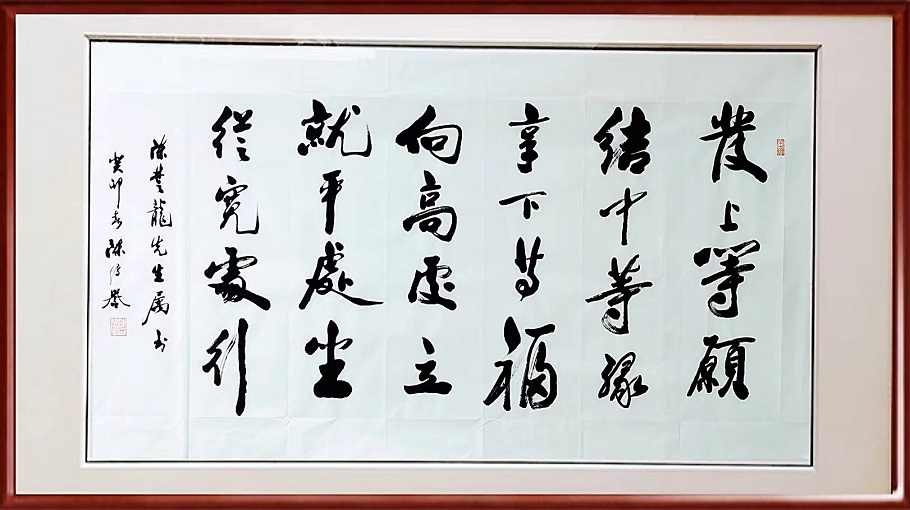 發上等願
結中等緣
享下等福
向高處立
就平處坐
從寬處行
陳楚龍先生属书
癸卯春陳传譽